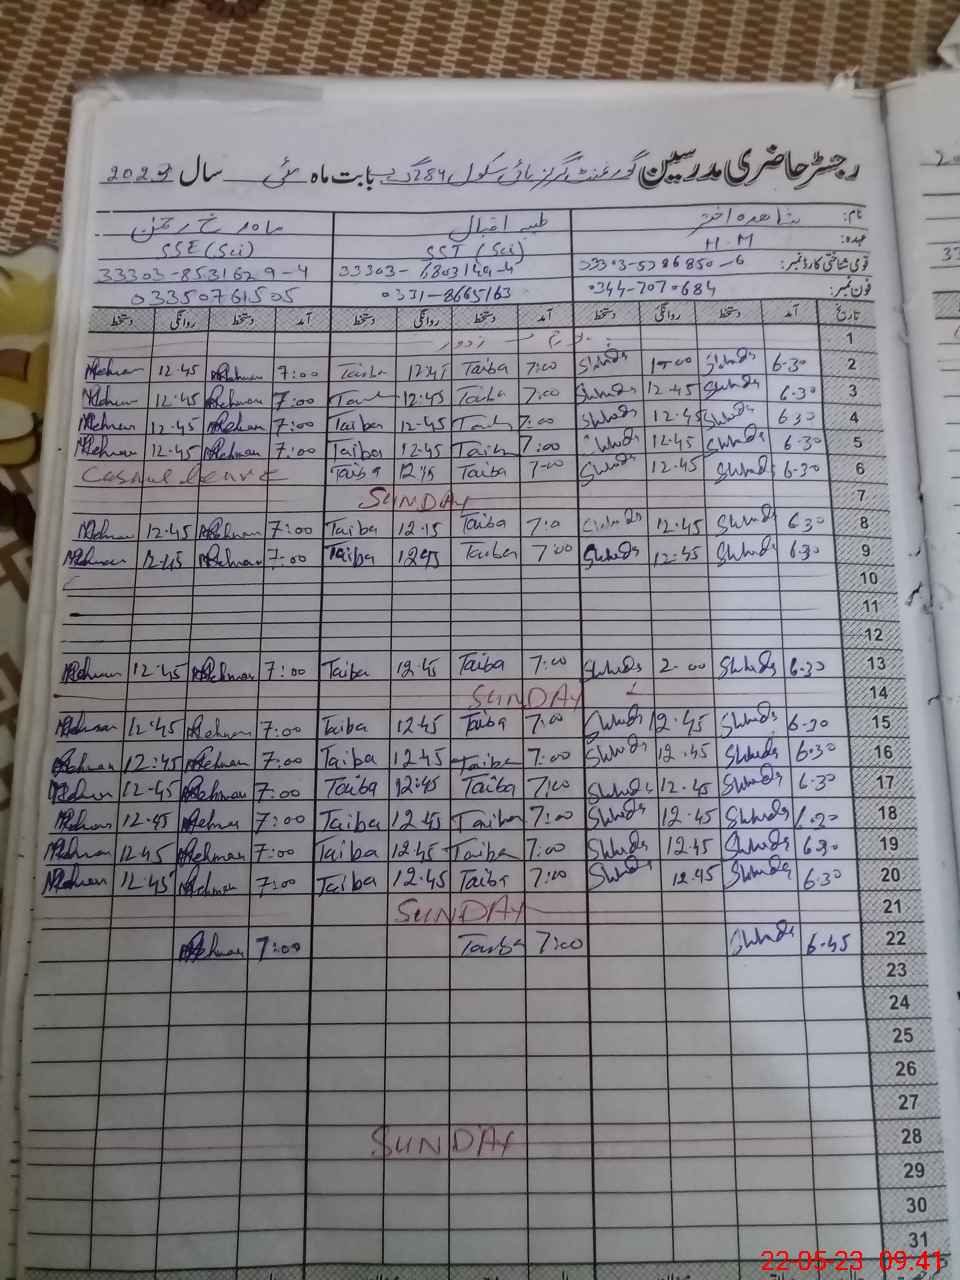 رجسٹر حاضری مدرسین گورنمنٹ گرلز ہائی سکول 284 گ ب بابت ماہ مئی سال 2023
نام: شاہدہ اختر طیبہ اقبال ماہ رخ رحمٰن
عہدہ: H.M SST (Sci) SSE (Sci)
قومی شناختی کارڈ نمبر: 33303-8531629-4
فون نمبر: 0344-7070684 0331-8665163 03350761505
تاریخ آمد دستخط روانگی دستخط آمد دستخط روانگی دستخط آمد دستخط روانگی دستخط
1
Rehman 12.45 Rehman 7:00 Taiba 12.45 Taiba 7:00 Shhnds 1-00 Shhnds 6.30 2
Rehman 12.45 Rehman 7:00 Taiba 12.45 Taiba 7:00 Shhnds 12.45 Shhnds 6.30 3
Rehman 12.45 Rehman 7:00 Taiba 12.45 Taiba 7:00 Shhnds 12.45 Shhnds 6.30 4
Rehman 12.45 Rehman 7:00 Taiba 12.45 Taiba 7:00 Shhnds 12.45 Shhnds 6.30 5
Casual leave Taiba 12.45 Taiba 7:00 Shhnds 12.45 Shhnds 6.30 6
SUNDAY 7
Rehman 12.45 Rehman 7:00 Taiba 12.45 Taiba 7:0 Shhnds 12.45 Shhnds 6.30 8
Rehman 12.45 Rehman 7:00 Taiba 12.45 Taiba 7:00 Shhnds 12.45 Shhnds 6.30 9
10
11
12
Rehman 12.45 Rehman 7:00 Taiba 12.45 Taiba 7:00 Shhnds 2-00 Shhnds 6.30 13
SUNDAY 14
Rehman 12.45 Rehman 7:00 Taiba 12.45 Taiba 7:00 Shhnds 12.45 Shhnds 6.30 15
Rehman 12.45 Rehman 7:00 Taiba 12.45 Taiba 7:00 Shhnds 12.45 Shhnds 6.30 16
Rehman 12.45 Rehman 7:00 Taiba 12.45 Taiba 7:00 Shhnds 12.45 Shhnds 6.30 17
Rehman 12.45 Rehman 7:00 Taiba 12.45 Taiba 7:00 Shhnds 12.45 Shhnds 6.30 18
Rehman 12.45 Rehman 7:00 Taiba 12.45 Taiba 7:00 Shhnds 12.45 Shhnds 6.30 19
Rehman 12.45 Rehman 7:00 Taiba 12.45 Taiba 7:00 Shhnds 12.45 Shhnds 6.30 20
SUNDAY 21
Rehman 7:00 Taiba 7:00 Shhnds 6-45 22
23
24
25
26
27
SUNDAY 28
29
30
31
22-05-23 09:41